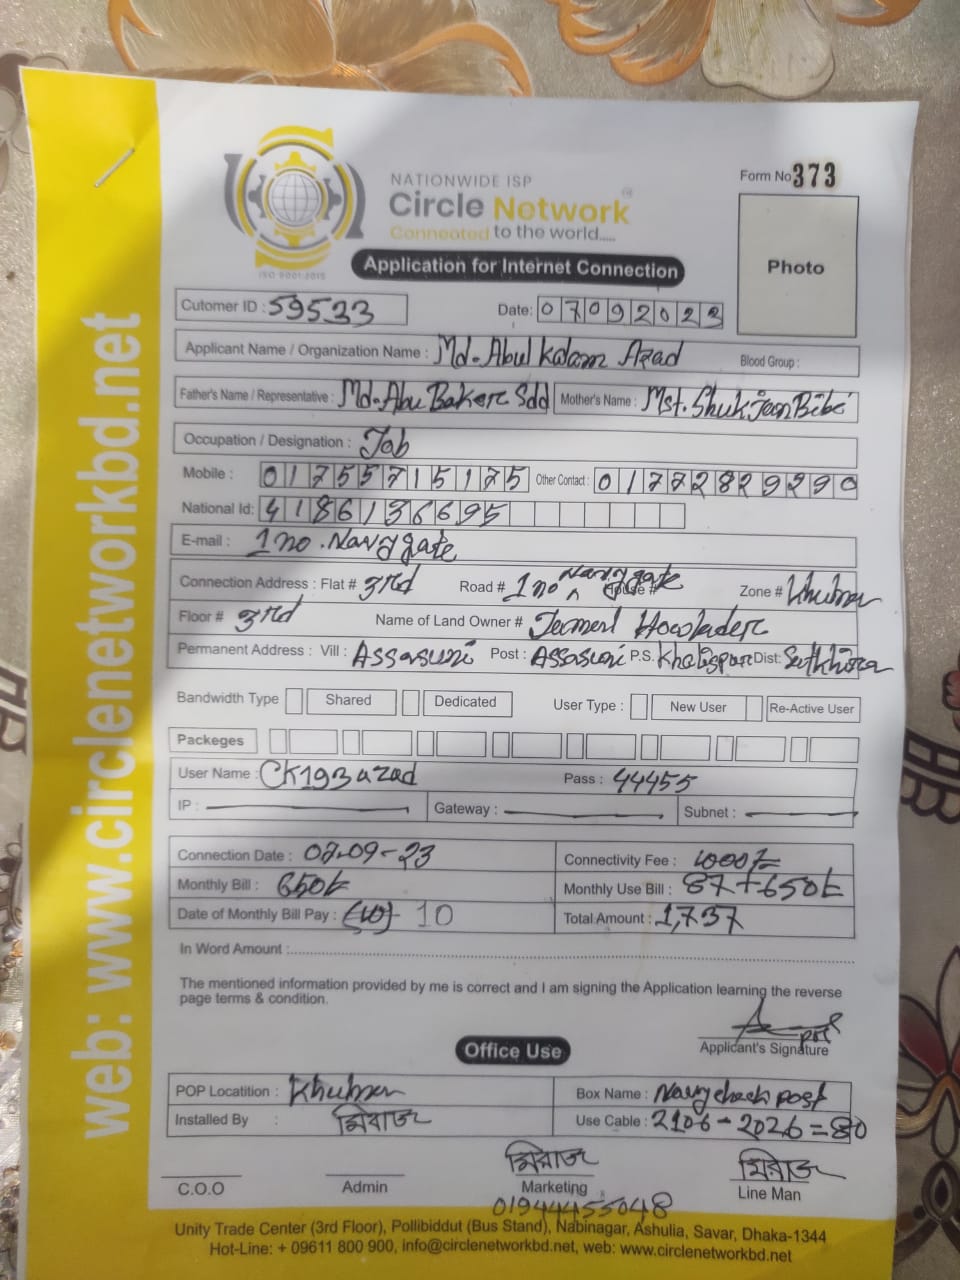 web: www.circlenetworkbd.net
NATIONWIDE ISP
Circle Network
Connected to the world.....
ISO 9001:2015
Form No 373
Photo
Application for Internet Connection
Cutomer ID : 59533 Date: 07092023
Applicant Name / Organization Name : Md. Abul Kalam Azad Blood Group :
Father's Name / Representative : Md. Abu Baker Sdd Mother's Name : Mst. Shuk Jan Bibi
Occupation / Designation : Job
Mobile : 01755715175 Other Contact : 01772829290
National Id: 4186136695
E-mail : 1 no. Navy gate
Connection Address : Flat # 3rd Road # 1 no Navy gate House # Zone # Khulna
Floor # 3rd Name of Land Owner # Howlader
Permanent Address : Vill : Assasuni Post : Assasuni P.S. Khalispur Dist: Satkhira
Bandwidth Type Shared Dedicated User Type : New User Re-Active User
Packeges
User Name : CK193azad Pass : 44455
IP : Gateway : Subnet :
Connection Date : 07-09-23 Connectivity Fee : 1000/=
Monthly Bill : 650/= Monthly Use Bill : 87+650/=
Date of Monthly Bill Pay : (10) 10 Total Amount : 1,737
In Word Amount :
The mentioned information provided by me is correct and I am signing the Application learning the reverse
page terms & condition.
Applicant's Signature
Office Use
POP Locatition : Khulna Box Name : Navy check post
Installed By : মিরাজ Use Cable : 2106-2026=80
মিরাজ মিরাজ
C.O.O Admin Marketing Line Man
01944455048
Unity Trade Center (3rd Floor), Pollibiddut (Bus Stand), Nabinagar, Ashulia, Savar, Dhaka-1344
Hot-Line: + 09611 800 900, info@circlenetworkbd.net, web: www.circlenetworkbd.net